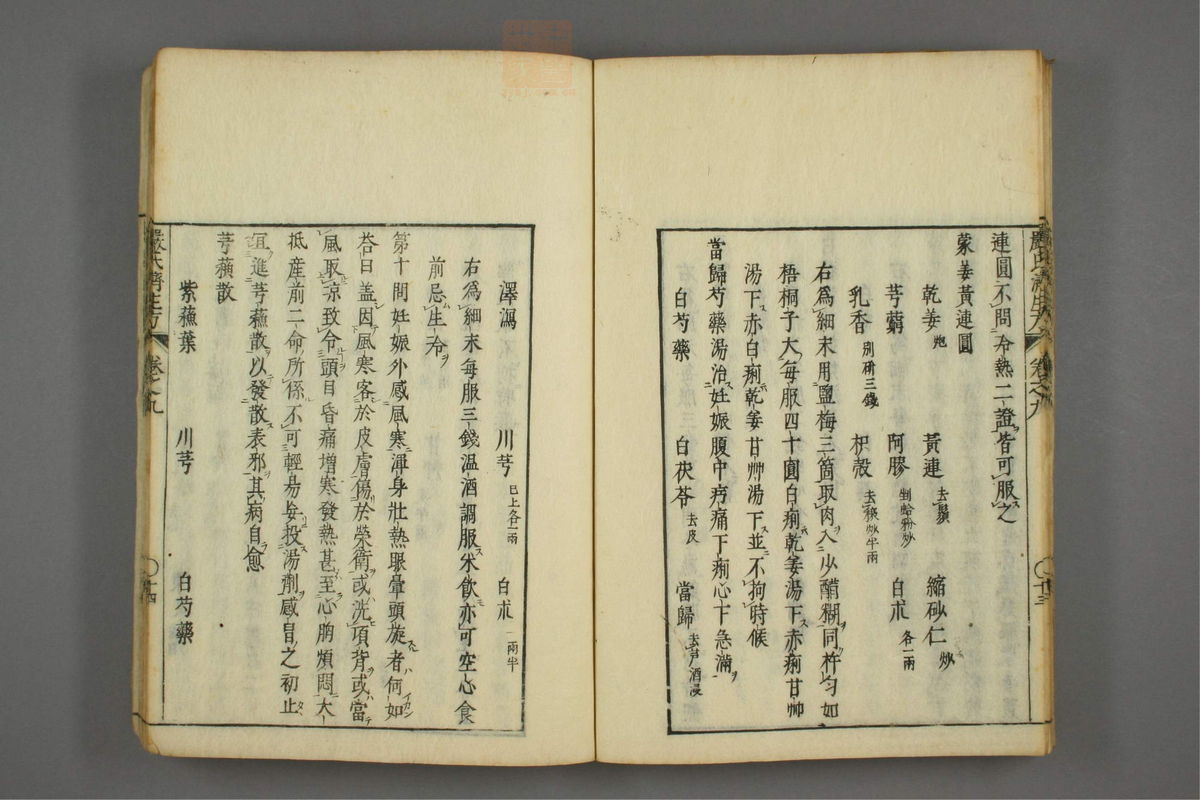 連圓不問冷熱二證皆可服之
蒙姜黃連圓
乾姜炮 黃連去鬚 縮砂仁炒
芎藭 阿膠剉蛤粉炒 白朮各一兩
乳香別研三錢 枳殼去穰炒半兩
右爲細末用鹽梅三箇取肉入少醋糊同杵勻如
梧桐子大每服四十圓白痢乾姜湯下赤痢甘艸
湯下赤白痢乾姜甘艸湯下並不拘時候
當歸芍藥湯治妊娠腹中㽲痛下痢心下急滿
白芍藥 白茯苓去皮 當歸去芦酒浸
嚴氏濟生方 卷之九 十三
澤瀉 川芎已上各一兩 白朮一兩半
右爲細末每服三錢温酒調服米飲亦可空心食
前忌生冷
第十問妊娠外感風寒渾身壯熱眼暈頭旋者何如
答曰盖因風寒客於皮膚傷於榮衛或洗項背或當
風取涼致令頭目昏痛增寒發熱甚至心胸煩悶大
抵產前二命所係不可輕易妄投湯劑感冒之初止
宜進芎蘓散以發散表邪其病自愈
芎蘓散
紫蘓葉 川芎 白芍藥
嚴氏濟生方 卷之九 十四